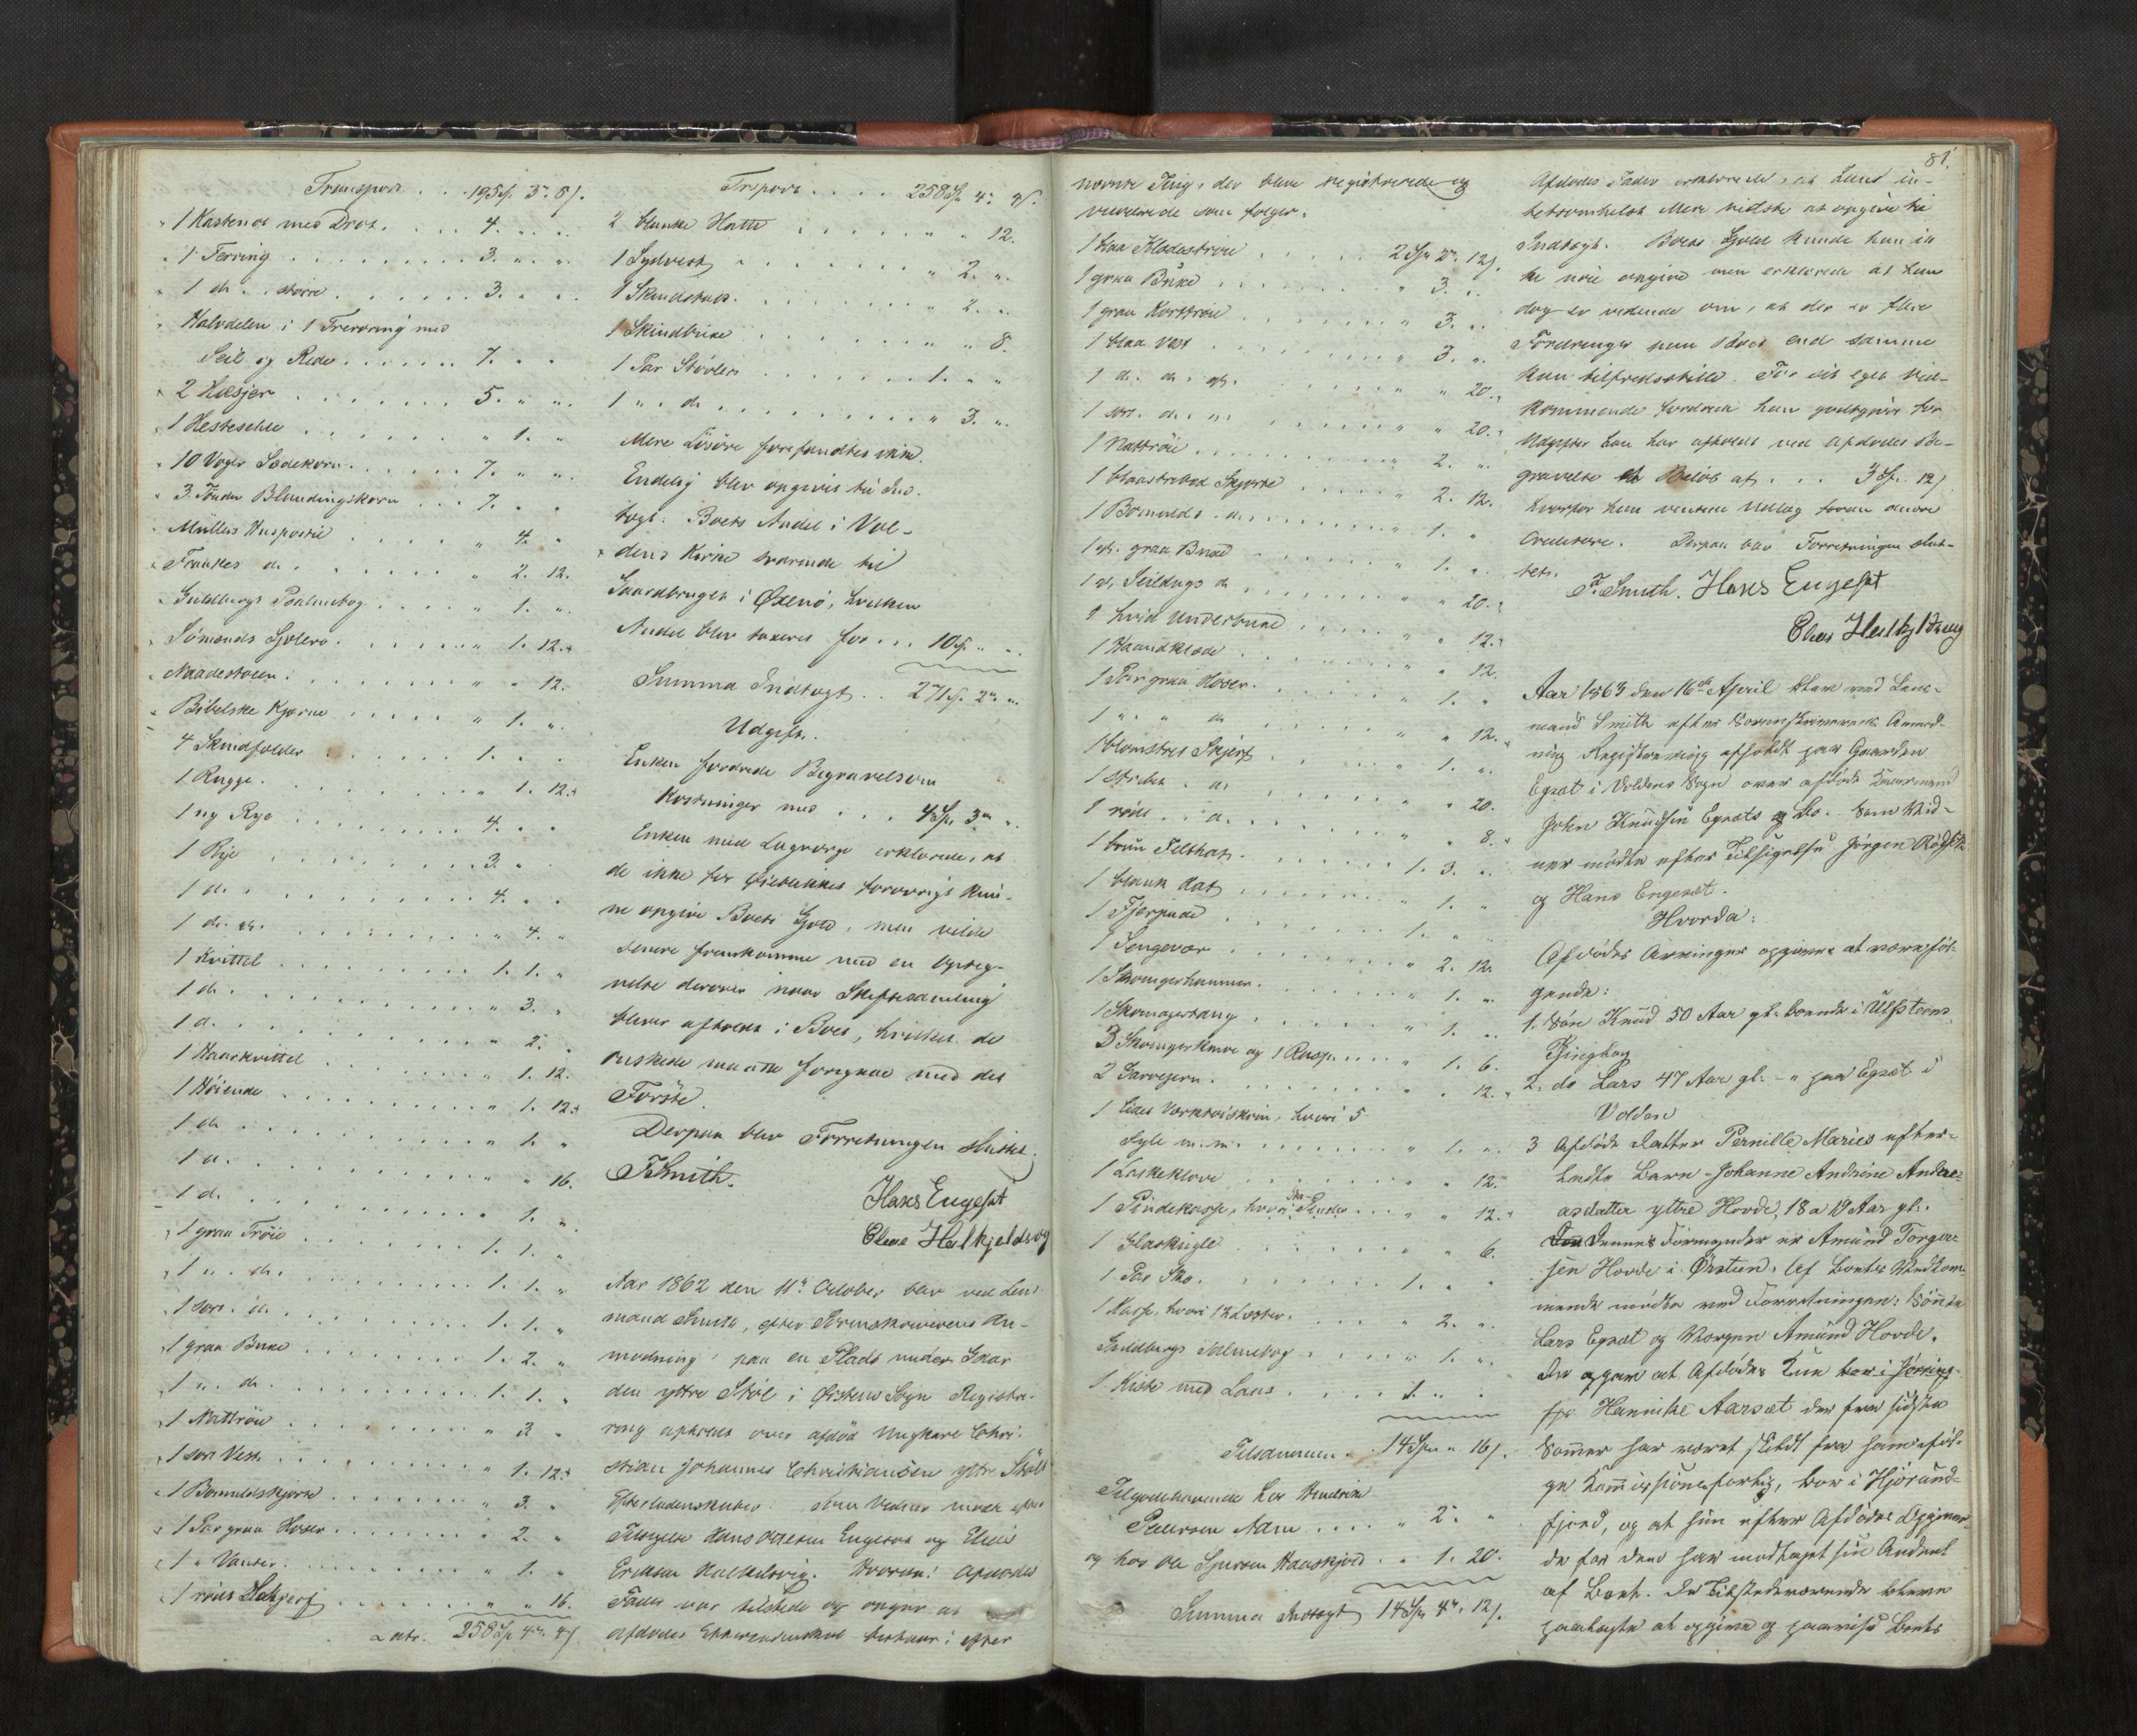 Transport . . . 195 Sp. 3 " 8 s.
1 Kastenot med Drot. . . 4. " "
1 Færing . . . 3. " "
1 do. større . . . 3. " "
Halvdelen i 1 Treroring med
Seil og Rede . . . 7. " "
2 Hæsjer . . . 5. " "
1 Hestesehle . . . " 1. "
10 Voger Sædekorn . . . 7. " "
3 Tønder Blandingskorn . . . 7. " "
Müllers Huspostil . . . " 4. "
Frankes do. . . . " 2. 12.
Guldbergs Psalmebog . . . " 1. "
Sømænds Sjelero . . . " 1. 12.
Naadestolen . . . " " 12.
Bibelske Kjærne . . . " 1. "
4 Skindfolder . . . 1. " "
1 Rugge . . . " 1. 12.
1 ny Rye . . . 4. " "
1 Rye . . . 3. " "
1 do. . . . 4. " "
1 do. gl. . . . " 4. "
1 Kvittel . . . 1. 1. "
1 do. . . . " 3. "
1 d. . . . " 2. "
1 Haarkvittel . . . " 1. 12.
1 Høiende . . . " 1. 12.
1 do . . . " 1. "
1 d. . . . " " 16.
1 d. . . . " 1. "
1 graa Trøie . . . 1. 1. "
1 " do. . . . 1. 1. "
1 sort d. . . . 1. 1. "
1 graa Buxe . . . 1. 2. "
1 " do . . . 1. 1. "
1 Nattrøie . . . " 3 "
1 sort Vest . . . " 1. 12.
1 Bomuldskjorte . . . " 3. "
1 Par graa Hoser . . . " 2. "
1 " Vanter . . . " 1. "
1 rødt Halsjerf . . . " " 16.
Latr. 258 Sp 4 " 4 s
Trsport . . . 258 Sp 4 " 4 s.
2 blanke Hatte . . . " " 12.
1 Sydvest . . . " 2. "
1 Skindstak . . . " 2. "
1 Skindbuxe . . . " " 8.
1 Par Støvler . . . 1. " "
1 " do . . . " 3. "
Mere Løsøre forefandtes ikke.
Endelig blev opgivet til Ind-
tægt: Boets Andel i Vol-
dens Kirke svarende til
Gaardbruget i Øxenö, hvilken
Andel blev taxeret for . . . 10 Sp. " "
Summa Indtægt . . 271 Sp. 2 " "
Udgift.
Enken fordrede Begravelsesom
kostninger med . . . 4 Sp. 3 " "
Enken med Lagværge erklærede, at
de ikke for Øieblikket forøvrigt kun-
ne opgive Boets Gjeld, men vilde
senere fremkomme med en Opteg-
nelse derover naar Skiftesamling
bliver afholdt i Boet, hvilket de
ønskede maatte foregaae med det
Første.
Derpaa blev Forretningen sluttet.
F Smith.
Hans Engeset
Elias Helkjeldsvig
Aar 1862 den 11te October blev ved Lens-
mand Smith, efter Sorenskriverens An-
modning, paa en Plads under Gaar
den yttre Støl i Ørstens Sogn Registre-
ring afholdt over afdød Ungkarl Chri-
stian Johannes Christiansen yttre Støls
Efterladenskaber. Som Vidner mødte efter
Tilsigelse Hans Engeset og Elias
Eriksen Helkelsvig. Hvorda: Afdødes
Fader var tilstede og opgav at
afdødes Efterladenskab bestaar i efter
81.
nævnte Ting, der bleve registrerede og
vurderede som følger:
1 blaa Klædestrøie . . . 2 Sp 2 " 12 s.
1 graa Buxe . . . " 3. "
1 graa Korttrøie . . . " 3. "
1 blaa Vest . . . " 3. "
1 do. do. gl. . . . " " 20.
1 sort do. " . . . " " 20.
1 Nattrøie . . . " 2. "
1 blaastribet Skjorte . . . " 2. 12.
1 Bomulds d. . . . " 1. "
1 gl. graa Buxe . . . " 1. "
1 gl. Seildugs do . . . " " 20.
1 hvid Underbuxe . . . " " 12.
1 Haandklæde . . . " " 12.
1 Par graa Hoser . . . " 1. "
1 " " do . . . " " 12.
1 blomstret Skjerf . . . " 1. "
1 stribet d. . . . " " 20.
1 rødt d. . . . " " 8.
1 brun Filthat . . . 1. 3. "
1 blank Hat . . . " 1. "
1 Fjerpude . . . 1. " "
1 Sengevær . . . " 2. 12.
1 Skomagerhammer . . . " 1. "
1 Skomagertang . . . " 1. "
3 Skomagerknive og 1 Rasp . . . " 1. 6.
2 Garvejern . . . " " 12.
1 lidet Værktøiskrin, hvori 5
Syle m.m. . . . " 1. "
1 Læskeklove . . . " " 12.
1 Pindekasse, hvori Sko-Pinder . . . " " 12.
1 Glaskugle . . . " " 6.
1 Par Sko . . . 1. " "
1 Kasse, hvori 12 Læster . . . " 2. "
Guldbergs Salmebog . . . " 1. "
1 Kiste med Laas . . . 1. " "
Tilsammen . . 14 Sp " 16 s.
Tilgodehavende hos Hendrik
Petersen Aam . . . " 2. "
og hos Ole Sjursen Haaskjold . " 1. 20.
Summa Indtægt 14 Sp 4 " 12 s.
Afdødes Fader erklærede, at han in-
tetsomhelst Mere vidste at opgive til
Indtægt. Boets Gjeld kunde han ik
ke nøie opgive men erklærede at han
dog er vidende om, at der er flere
Fordringer paa Boet end samme
kan tilfredsstille. For sit eget Ved-
kommende fordrede han godtgjort for
Udgifter han har afholdt ved afdødes Be-
gravelse et Beløb af . . . 3 Sp. 12 s
hvorfor han ventede Udlæg foran andre
Creditorer. Derpaa blev Forretningen slut-
tet.
F Smith. Hans Engeset
Elias Helkjeldsvig
Aar 1863 den 16de April blev ved Lens-
mand Smith efter Sorenskriverens Anmod-
ning Registrering afholdt paa Gaarden
Egset i Voldens Sogn over afdøde Kaarmand
John Knudsen Egsets Bo. Som Vid-
ner mødte efter Tilsigelse Jørgen Rødset
og Hans Engeset.
Hvorda:
Afdødes Arvinger opgives at være føl-
gende:
1. Søn Knud 50 Aar gl. boende i Ulfsteens
Thinglag
2. do Lars 47 Aar gl. - " paa Egset i
Volden
3 Afdøde Datter Pernille Maries efter-
ladte Barn Johanne Andrine Andre-
asdatter yttre Hovde, 18 a 19 Aar gl.
Dennes Formynder er Amund Torger-
sen Hovde i Ørsten. Af Boets Vedkom-
mende mødte ved Forretningen: Sønnen
Lars Egset og Værgen Amund Hovde.
De opgav at Afdødes Enke
Hannike Aarset der fra sidste
Sommer har været skildt fra ham ifølge
ge Kommissionsforlig, bor i Hjørund-
fjord, og at hun efter Afdødes Opgiven-
de før Død har modtaget sin Andeel
af Boet. De Tilstedeværende bleve
paalagte at opgive og paavise Boets